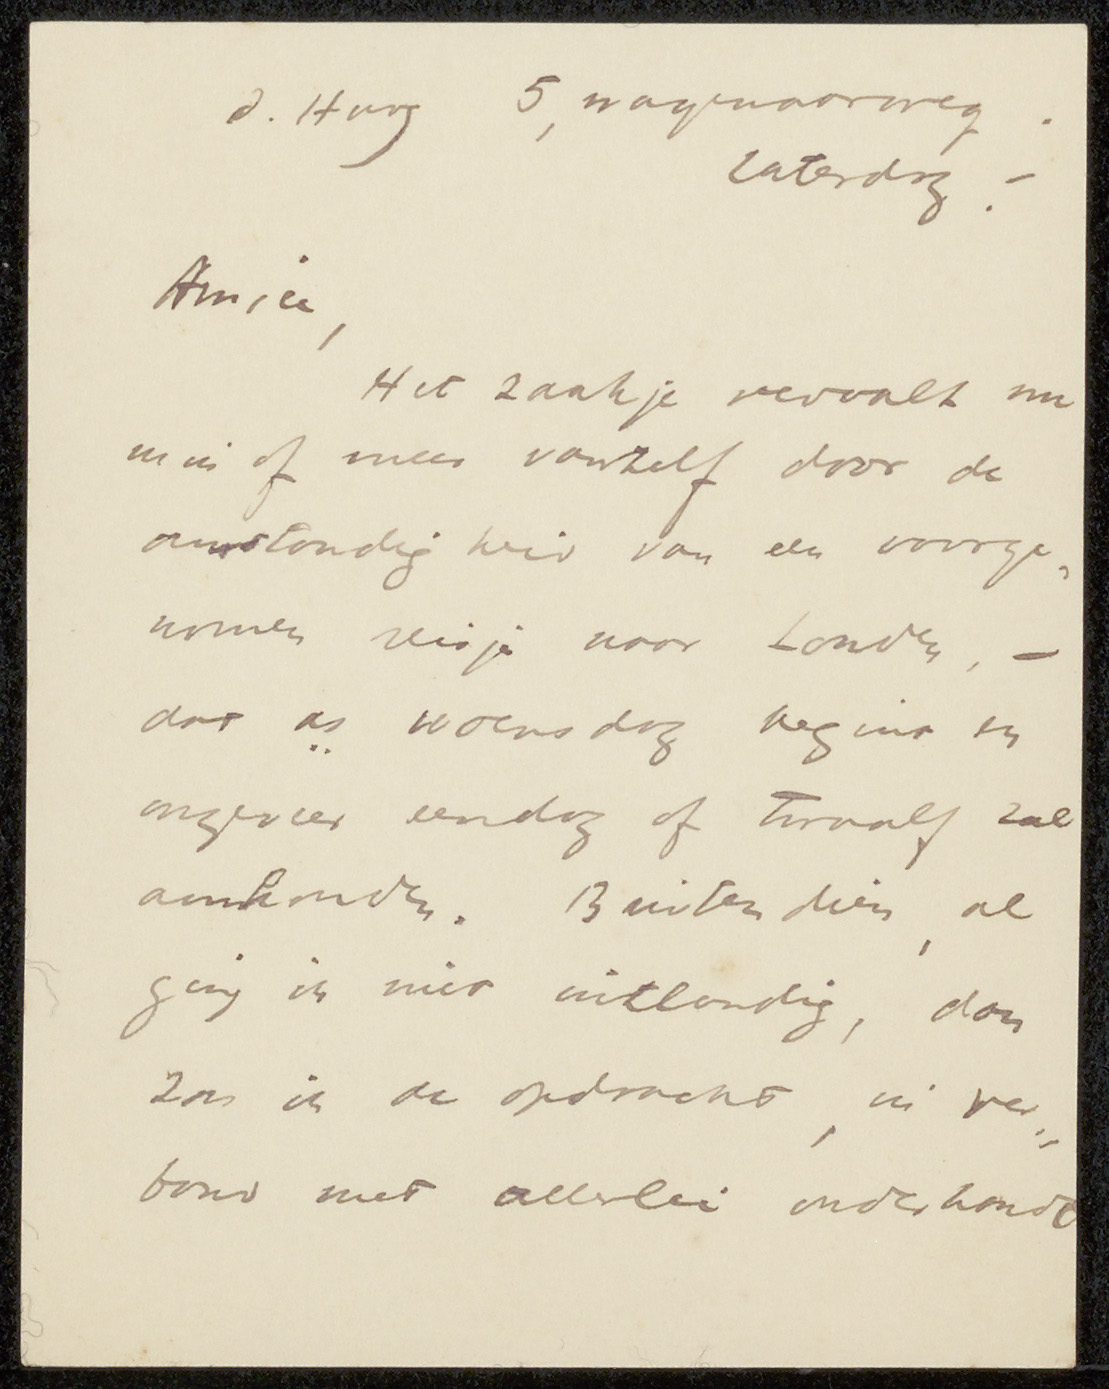 d. Haag 5, Wagenaarweg.
Zaterdag. –
Amice,
Het zaakje vervalt nu
min of meer vanzelf door de
omstandigheid van een voorge-
nomen reisje naar Londen, –
dat as Woensdag begint en
ongeveer een dag of twaalf zal
aanhouden. Buitendien, al
ging ik niet uitlandig, dan
zou ik de opdracht, in ver-
band met allerlei onderhande